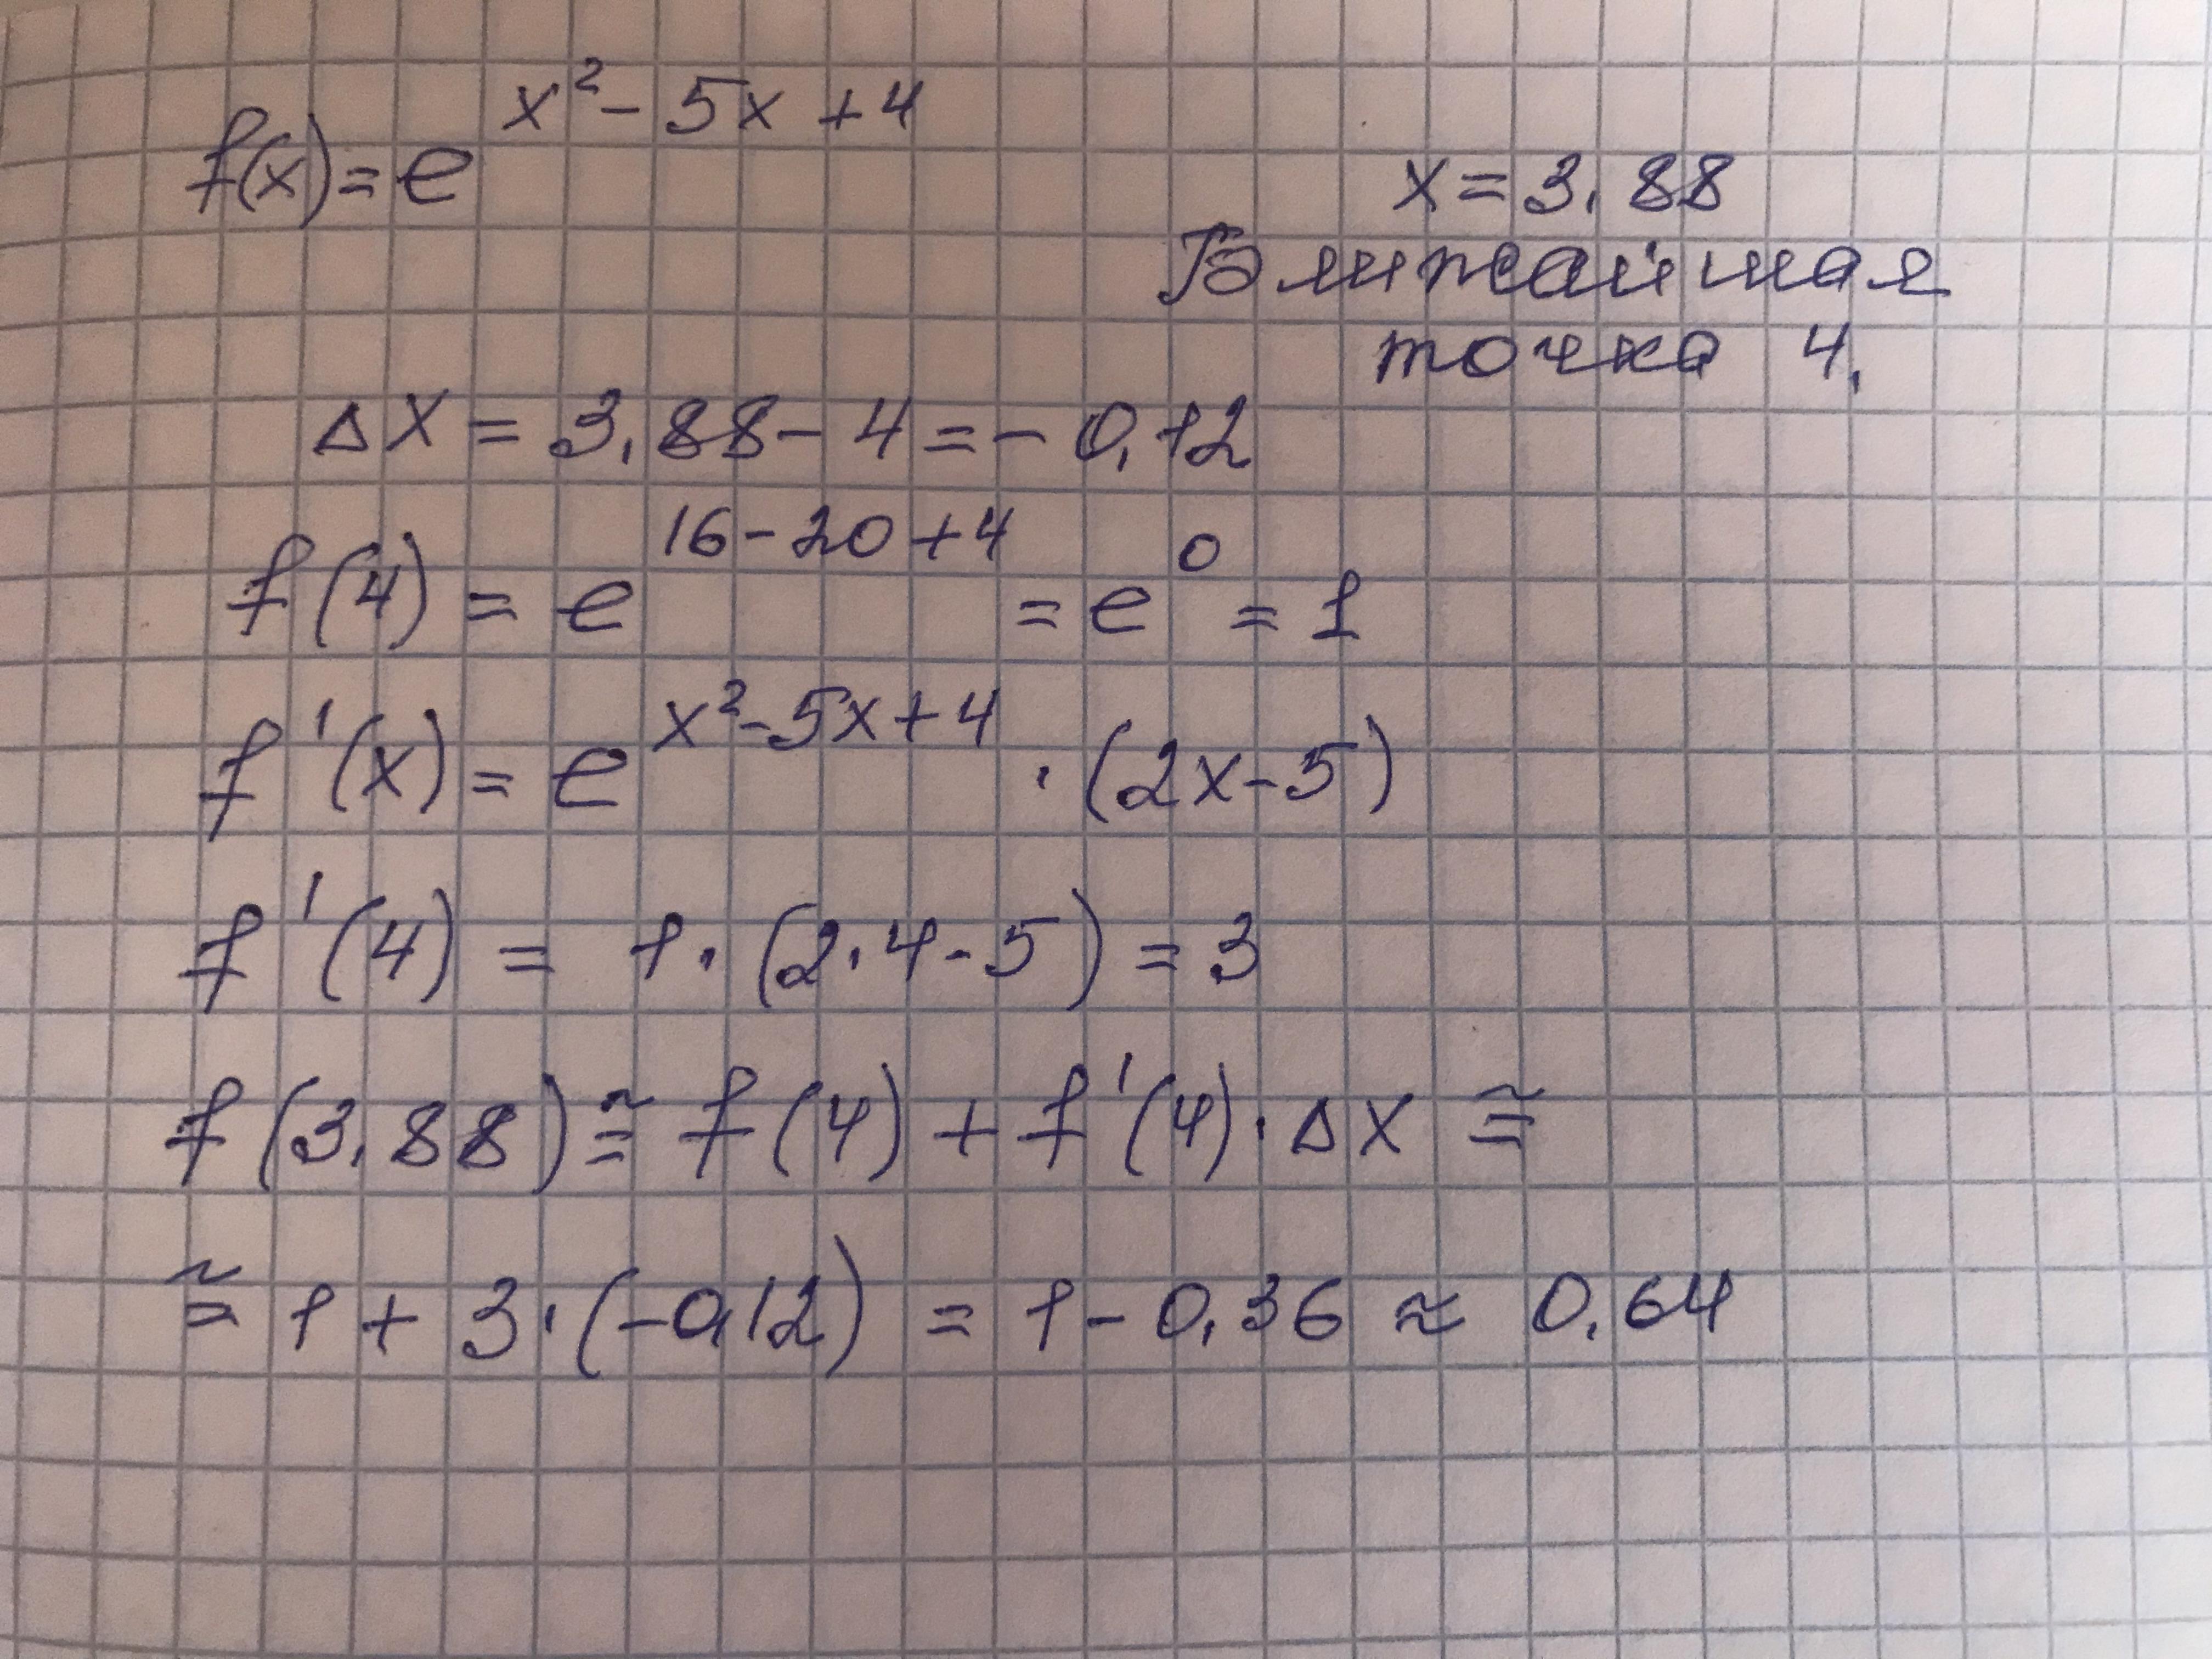 f(x) = e^{x² - 5x + 4}
x = 3,88
Ближайшая
точка 4.
Δx = 3,88 - 4 = - 0,12
f(4) = e^{16 - 20 + 4} = e^0 = 1
f'(x) = e^{x² - 5x + 4} · (2x - 5)
f'(4) = 1 · (2 · 4 - 5) = 3
f(3,88) ≅ f(4) + f'(4) · Δx ≅
≅ 1 + 3 · (-0,12) = 1 - 0,36 ≈ 0,64